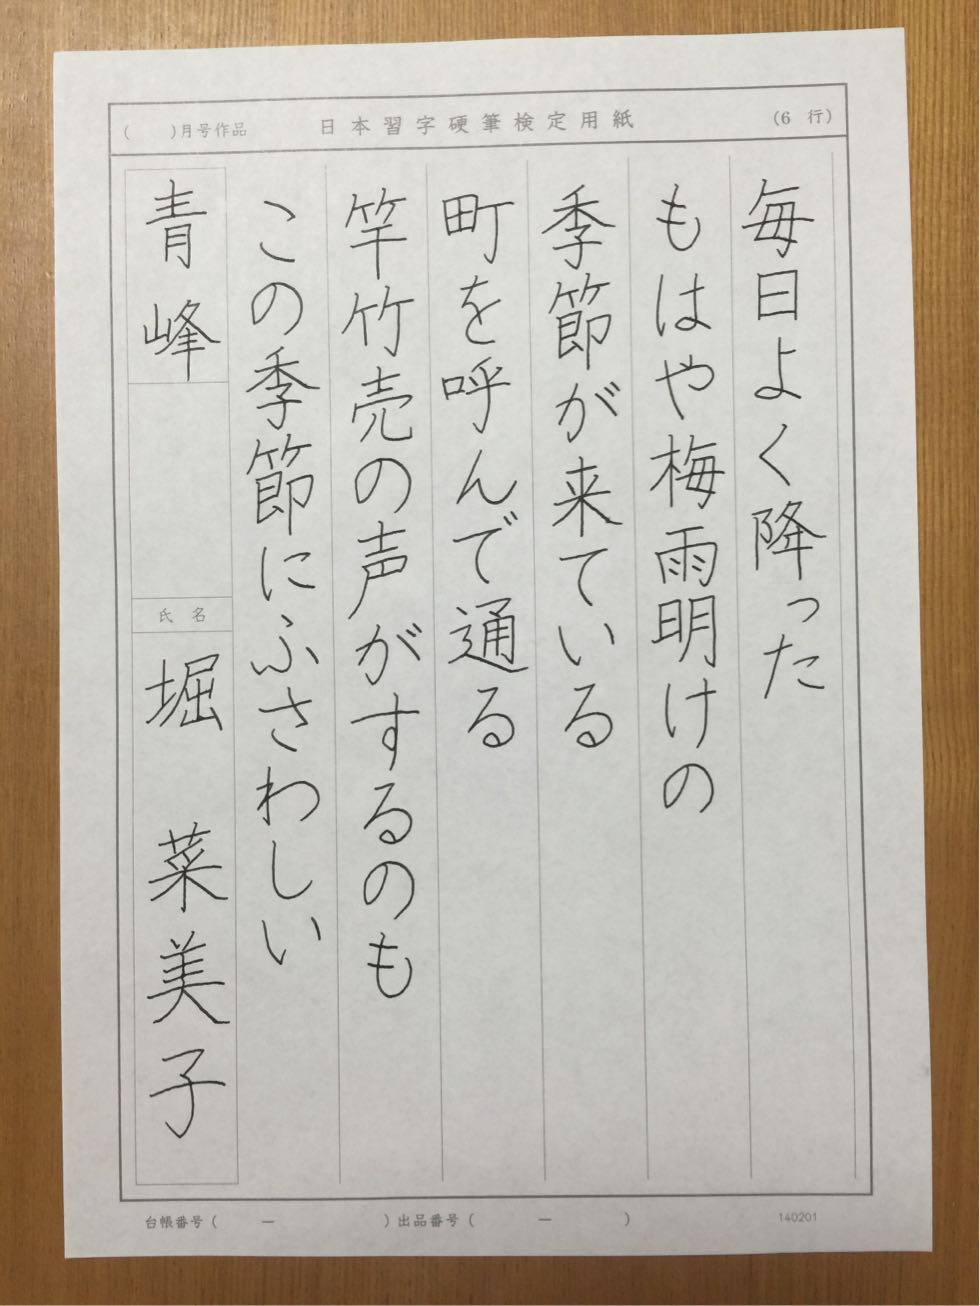 ( )月号作品 日本習字硬筆検定用紙 (6 行)
毎日よく降った
もはや梅雨明けの
季節が来ている
町を呼んで通る
竿竹売の声がするのも
この季節にふさわしい
青峰
氏名
堀 菜美子
台帳番号( ー )出品番号( ー ) 140201